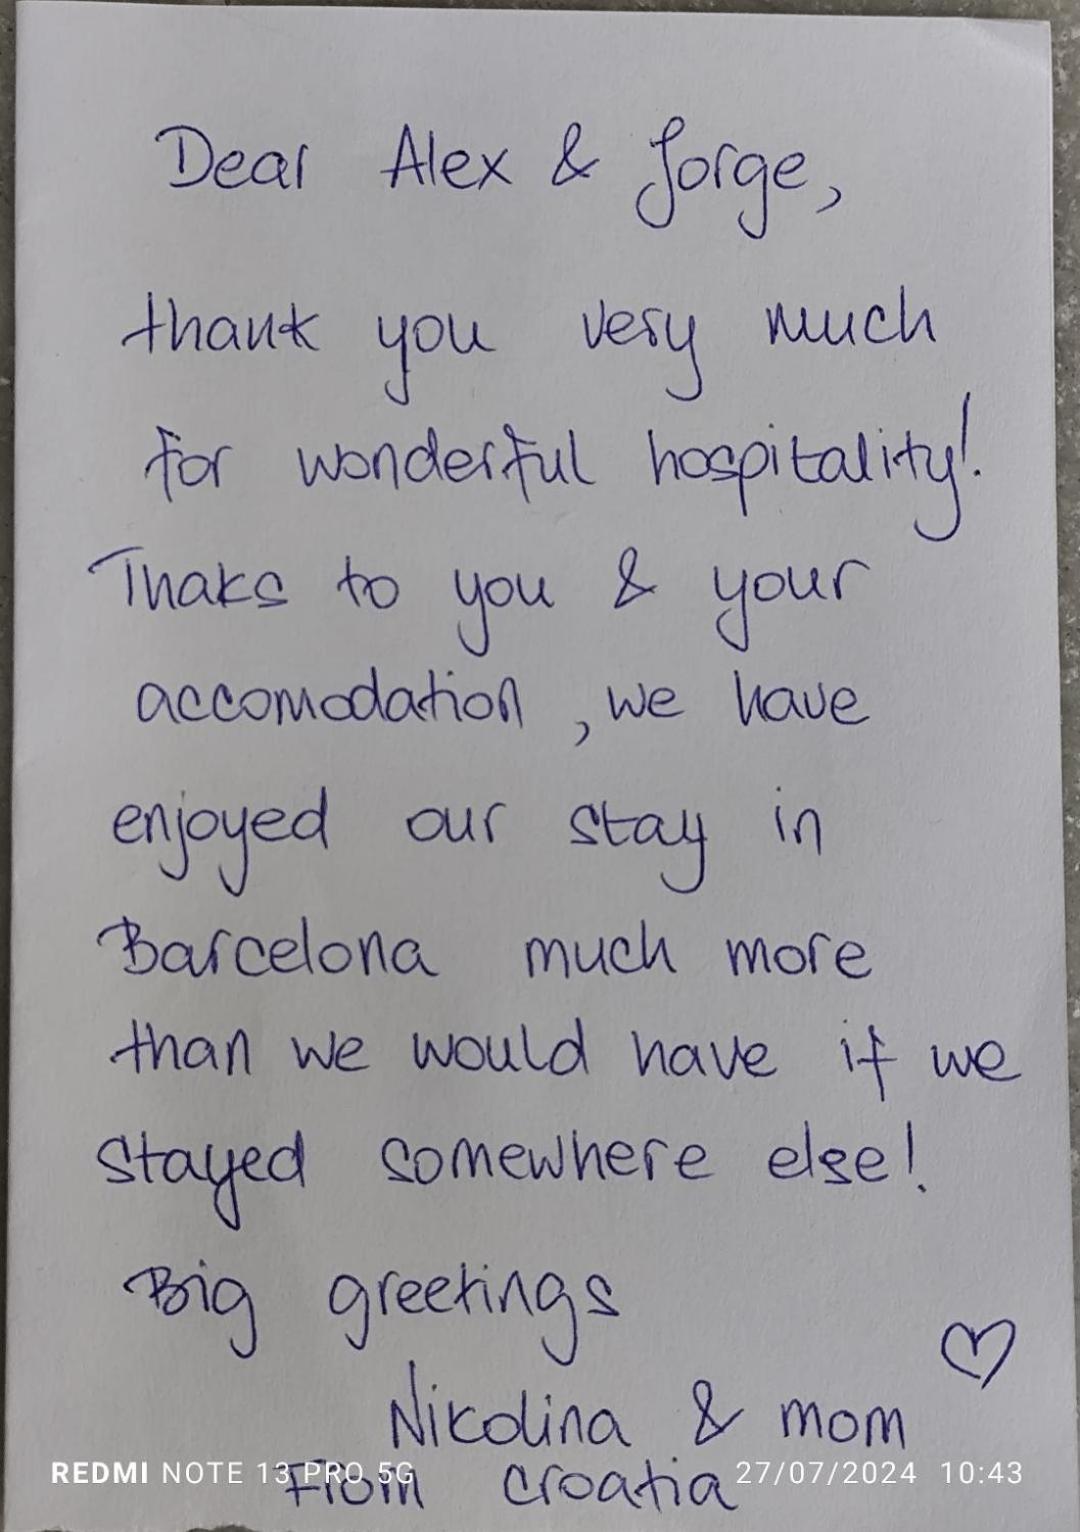 Dear Alex & Jorge,
thank you very much
for wonderful hospitality!
Thaks to you & your
accomodation, we have
enjoyed our stay in
Barcelona much more
than we would have if we
stayed somewhere else!
Big greetings
Nikolina & mom
From Croatia
REDMI NOTE 13 PRO 5G 27/07/2024 10:43